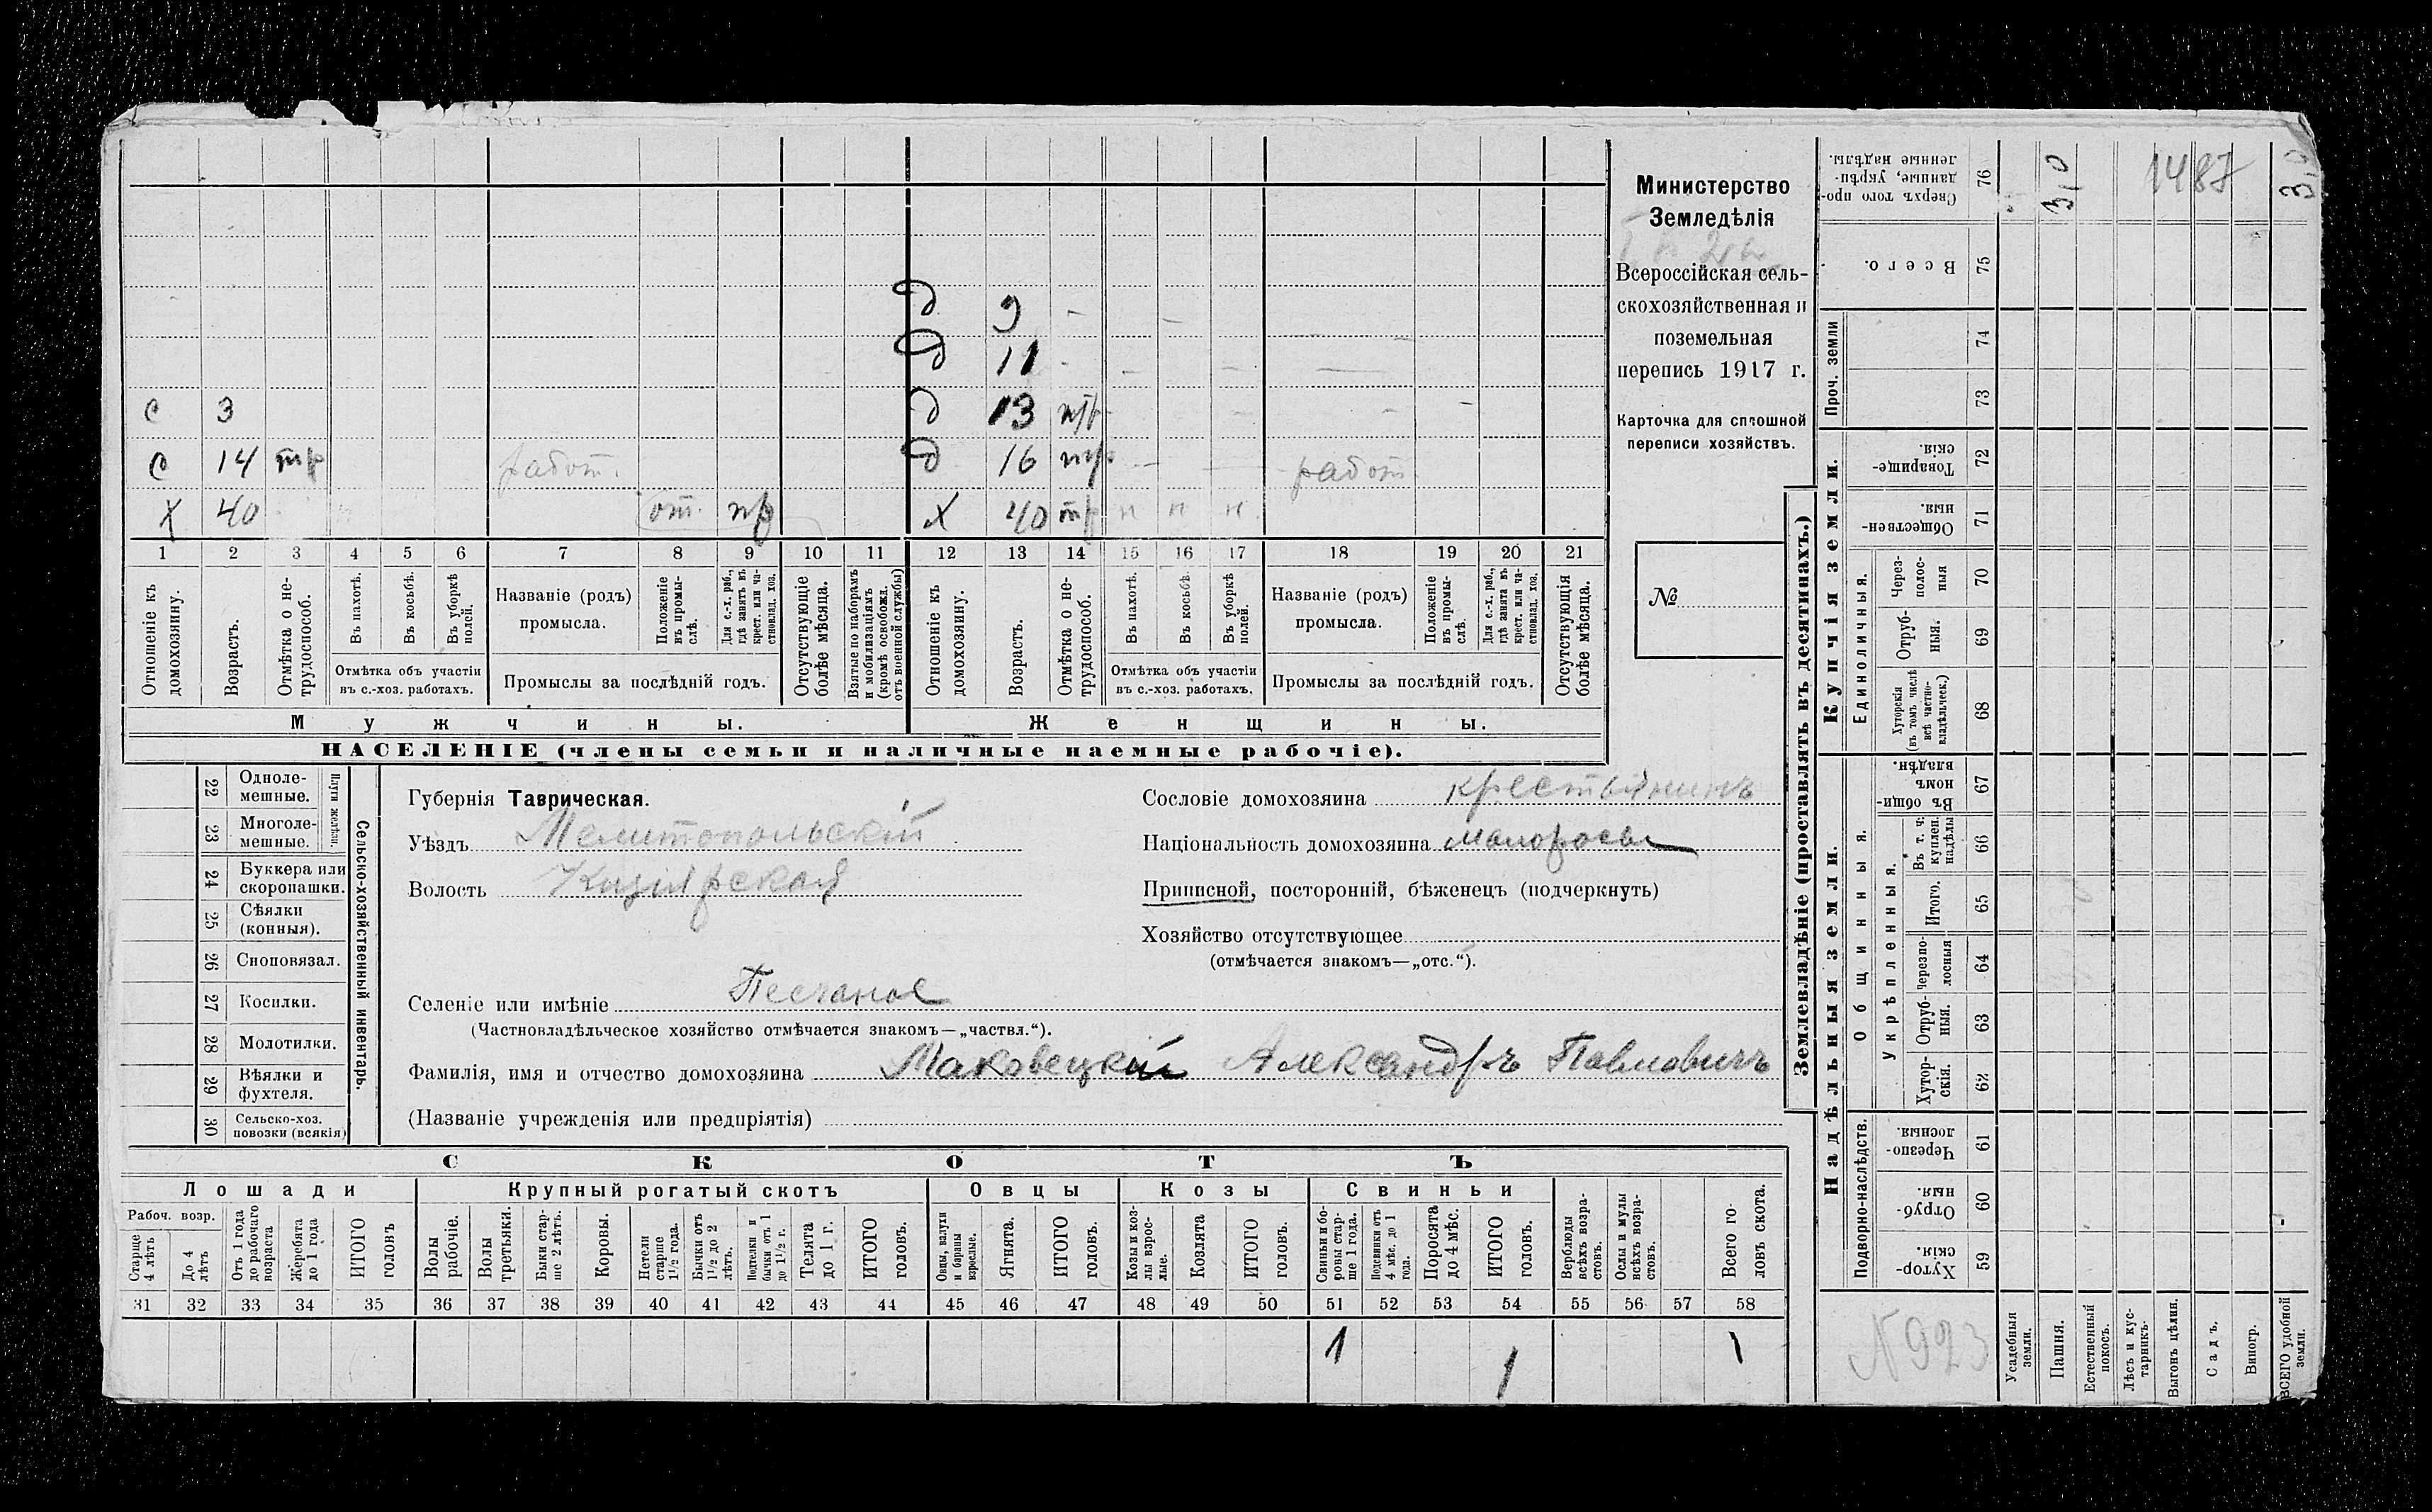 Министерство
Земледѣлія
Всероссійская сель-
скохозяйственная и
поземельная
перепись 1917 г.
Карточка для сплошной
переписи хозяйствъ.
№
д 9 -
д 11 -
с 3 д 13 п/р
с 14 пр работ. д 16 пр работ
х 40 от. пр х 40 пр н н н
1 2 3 4 5 6 7 8 9 10 11 12 13 14 15 16 17 18 19 20 21
Отношеніе къ домохозяину.
Возрастъ.
Отмѣтка о не-трудоспособ.
Въ пахотѣ.
Въ косьбѣ.
Въ уборкѣ полей.
Отмѣтка объ участіи
въ с.-хоз. работахъ.
Названіе (родъ)
промысла.
Положеніе въ промы-слѣ.
Для с.-х. раб., гдѣ занятъ въ крест. или ча-стновлад. хоз.
Промыслы за послѣдній годъ.
Отсутствующіе болѣе мѣсяца.
Взятые по наборамъ и мобилизаціямъ (кромѣ освобожд. отъ военной службы)
Отношеніе къ домохозяину.
Возрастъ.
Отмѣтка о не-трудоспособ.
Въ пахотѣ.
Въ косьбѣ.
Въ уборкѣ полей.
Отмѣтка объ участіи
въ с.-хоз. работахъ.
Названіе (родъ)
промысла.
Положеніе въ промы-слѣ.
Для с.-х. раб., гдѣ занята въ крест. или ча-стновлад. хоз.
Промыслы за послѣдній годъ.
Отсутствующія болѣе мѣсяца.
Мужчины.
Женщины.
НАСЕЛЕНІЕ (члены семьи и наличные наемные рабочіе).
Сельско-хозяйственный инвентарь.
Плуги желѣзн.
22 Одноле-мешные.
23 Многоле-мешные.
24 Буккера или скоропашки.
25 Сѣялки (конныя).
26 Сноповязал.
27 Косилки.
28 Молотилки.
29 Вѣялки и фухтеля.
30 Сельско-хоз. повозки (всякія)
Губернія Таврическая.
Уѣздъ Мелитопольскій
Волость Кизіярская
Сословіе домохозяина крестьянинъ
Національность домохозяина малороссъ
Приписной, посторонній, бѣженецъ (подчеркнуть)
Хозяйство отсутствующее
(отмѣчается знакомъ—„отс.“).
Селеніе или имѣніе Песчаное
(Частновладѣльческое хозяйство отмѣчается знакомъ—„частвл.“).
Фамилія, имя и отчество домохозяина Маковецкій Александръ Павловичъ
(Названіе учрежденія или предпріятія)
СКОТЪ
Лошади
Крупный рогатый скотъ
Овцы
Козы
Свиньи
Рабоч. возр.
Старше 4 лѣтъ
До 4 лѣтъ
Отъ 1 года до рабочаго возраста
Жеребята до 1 года
ИТОГО головъ
Волы рабочіе.
Волы третьяки.
Быки стар-ше 2 лѣтъ.
Коровы.
Нетели старше 1½ года.
Бычки отъ 1½ до 2 лѣтъ.
Подтелки и бычки отъ 1 до 1½ г.
Телята до 1 г.
ИТОГО головъ.
Овцы, валухи и бараны взрослые.
Ягнята.
ИТОГО головъ.
Козы и коз-лы взрос-лые.
Козлята
ИТОГО головъ.
Свиньи и бо-ровы стар-ше 1 года.
Подсвинки отъ 4 мѣс. до 1 года.
Поросята до 4 мѣс.
ИТОГО головъ.
Верблюды всѣхъ возра-стовъ.
Ослы и мулы всѣхъ возра-стовъ.
Всего го-ловъ скота.
31 32 33 34 35 36 37 38 39 40 41 42 43 44 45 46 47 48 49 50 51 52 53 54 55 56 57 58
1 1 1
Землевладѣніе (проставлять въ десятинахъ.)
Купчія земли.
Надѣльныя земли.
Проч. земли
Единоличныя.
Общинныя.
Укрѣпленныя.
Подворно-наслѣдств.
Сверхъ того про-данные, укрѣп-ленные надѣлы. 76 3,0 1487 3,0
Всего. 75
74
73
Товарище-скія. 72
Обществен-ныя. 71
Через-полос-ныя 70
Отруб-ныя. 69
Хуторскія (въ томъ числѣ всѣ частно-владѣльчек.) 68
Въ общи-номъ владѣн. 67
Въ т. ч. куплен. надѣлы 66
Итого. 65
черезпо-лосныя 64
Отруб-ныя. 63
Хутор-скія. 62
Черезпо-лосныя. 61
Отруб-ныя. 60
Хутор-скія. 59
Усадебныя земли.
Пашня.
Естественный покосъ.
Лѣсъ и кус-тарникъ.
Выгонъ цѣлин.
Садъ.
Виногр.
ВСЕГО удобной земли.
N 923